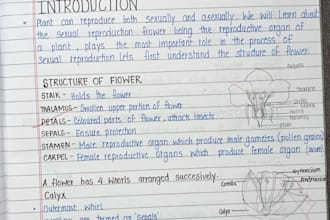 INTRODUCTION
Plant can reproduce both sexually and asexually. We will learn about
the sexual reproduction flower being the reproductive organ of
a plant, plays the most important role in the process of
sexual reproduction lets first understand the structure of flower.
STRUCTURE OF FLOWER
STALK - Holds the flower
THALAMUS - Swollen upper portion of flower
PETALS - Coloured parts of flower, attracts insects
SEPALS - Ensure protection
STAMEN - Male reproductive organ which produce male gametes (pollen grains)
CARPEL - Female reproductive organs which produce female organ
Petals
Stamen
A flower has 4 whorls arranged succesively.
Calyx
Outermost whorl
are termed as 'sepals'
Gynoecium
Corolla
Androecium
Calyx